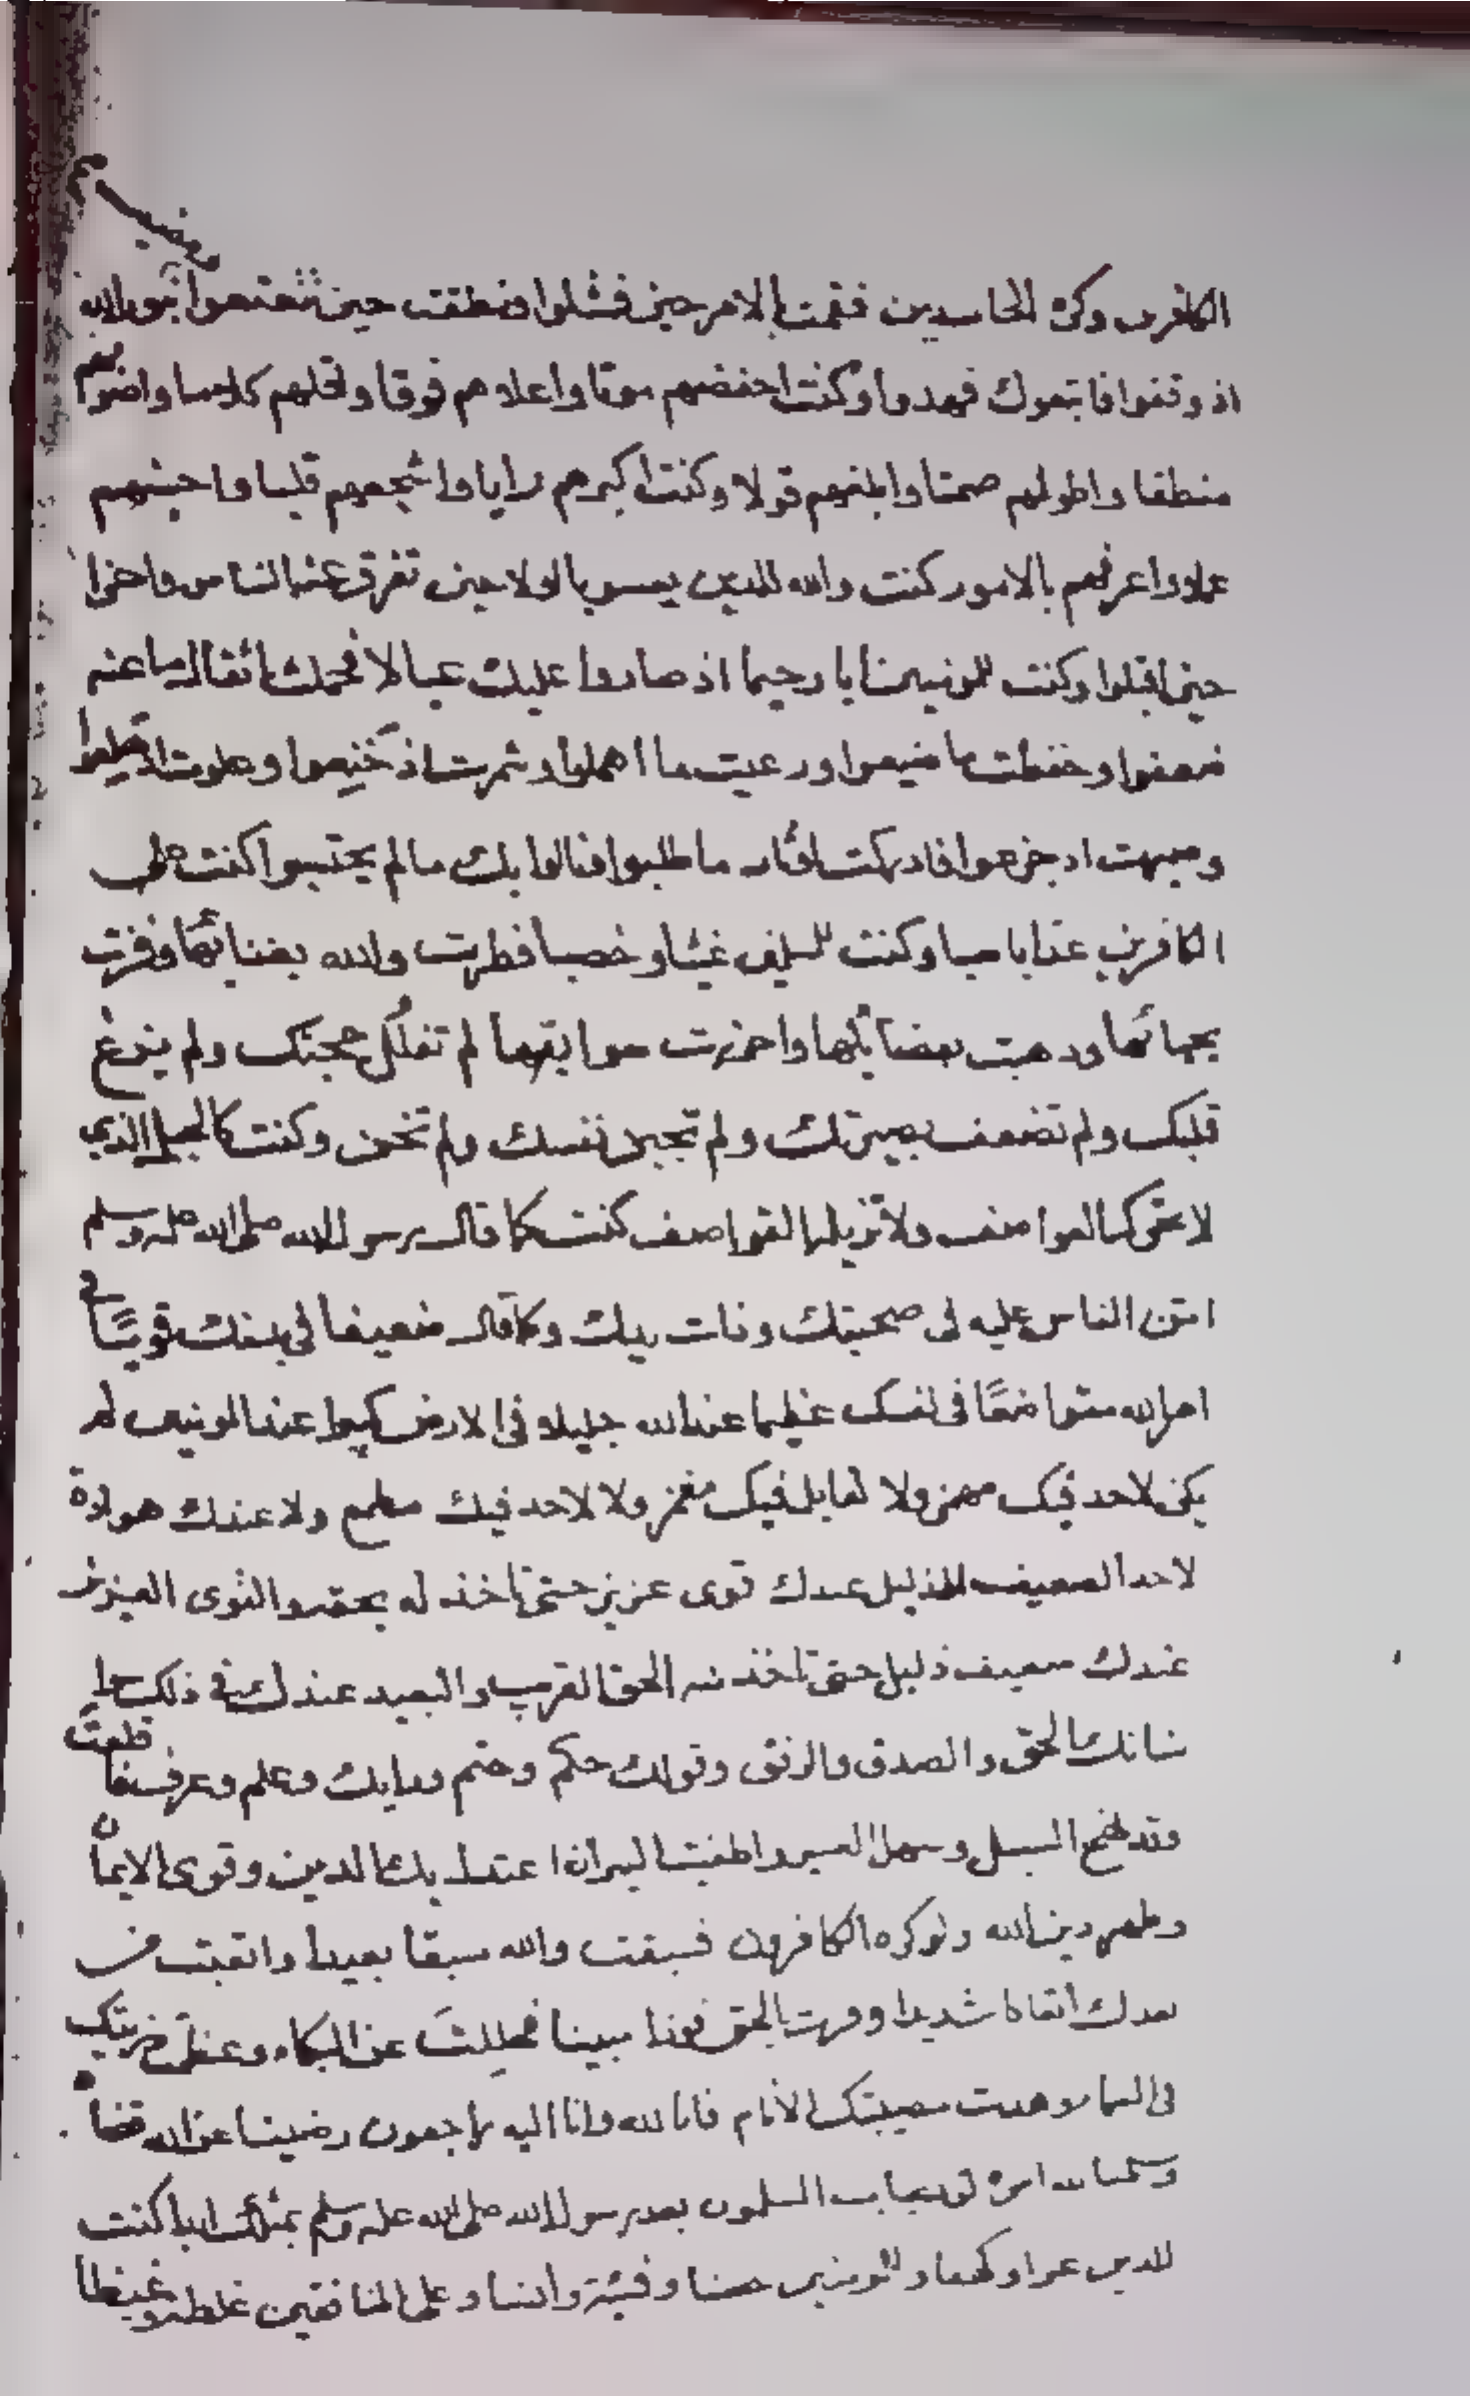 الكافرين وكره الحاسدين فقمت بالامر حين فشلوا ونطقت حين تتعتعوا بنور الله
اذ وقفوا فاتبعوك فهدوا وكنت احفضهم صوتا واعلاهم فوقا واقلهم كلاما واصوبهم
منطقا واطولهم صمتا وابلغهم قولا وكنت اكبرهم رايا واشجعهم قلبا واحسنهم
عملا واعرفهم بالامور كنت والله للدين يعسوبا اولا حين تفرق عنه الناس واخرا
حين اقبلوا وكنت للمومنين ابا رحيما اذ صاروا عليك عيالا فحملت اثقال ما عنه
ضعفوا وحفظت ما ضيعوا ورعيت ما اهملوا وشمرت اذ خنعوا وعلوت اذ هلعوا
وصبرت اذ جزعوا فادركت اثار ما طلبوا فنالوا بك ما لم يحتسبوا كنت على
الكافرين عذابا صبا وكنت للمسلمين غيثا وخصبا فطرت والله بغنائها وفزت
بحبائها وذهبت بفضائلها واحرزت سوابقها لم تفلل حجتك ولم يزغ
قلبك ولم تضعف بصيرتك ولم تجبن نفسك ولم تخن وكنت كالجبل الذي
لا تحركه العواصف ولا تزيله القواصف كنت كما قال رسول الله صلى الله عليه وسلم
امن الناس عليه في صحبتك وذات يدك وكما قال ضعيفا في بدنك قويا في
امر الله متواضعا في نفسك عظيما عند الله جليلا في الارض كبيرا عند المومنين لم
يكن لاحد فيك مهمز ولا لقايل فيك مغمز ولا لاحد فيك مطمع ولا عندك هوادة
لاحد الضعيف الذليل عندك قوى عزيز حتى تاخذ له بحقه والقوى العزيز
عندك ضعيف ذليل حتى تاخذ منه الحق القريب والبعيد عندك في ذلك سوا
شانك الحق والصدق والرفق وقولك حكم وحتم ورايك وعلم وعزم فاقلعت
وقد نهج السبيل وسهل العسير واطفيت النيران اعتدل بك الدين وقوى الايمان
وظهر دين الله ولو كره الكافرون فسبقت والله سبقا بعيدا واتعبت من
بعدك اتعابا شديدا وفزت بالحق فوزا مبينا فجللت عن البكاء وعظمت رزيتك
في السما وهدت مصيبتك الأنام فانا لله وانا اليه راجعون رضينا عن الله قضاه
وسلمنا له امره لن يصاب المسلمون بعد رسول الله صلى الله عليه وسلم بمثلك ابدا كنت
للدين عزا وكهفا وللمومنين حصنا وفئة وانسا وعلى المنافقين غلظة وغيظا